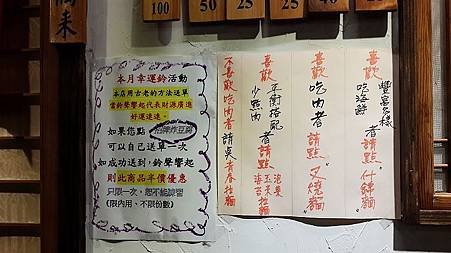 100
50
25
25
40
本月幸運鈴活動
本店用古老的方法送單
當鈴聲響起代表財源廣進
好運連連。
如果您點 招牌炸豆腐
可以自己送單一次
如成功送到,鈴聲響起
則此商品半價優惠
只限一次,恕不能練習
(限內用、不限份數)
喜歡 豐富多樣 吃海鮮 者請點 什錦麵
喜歡吃肉者請點 叉燒麵
喜歡 平衡搭配 少點肉 者請點 泡菜 玉米 海苔 拉麵
不喜歡吃肉者請點 青春拉麵